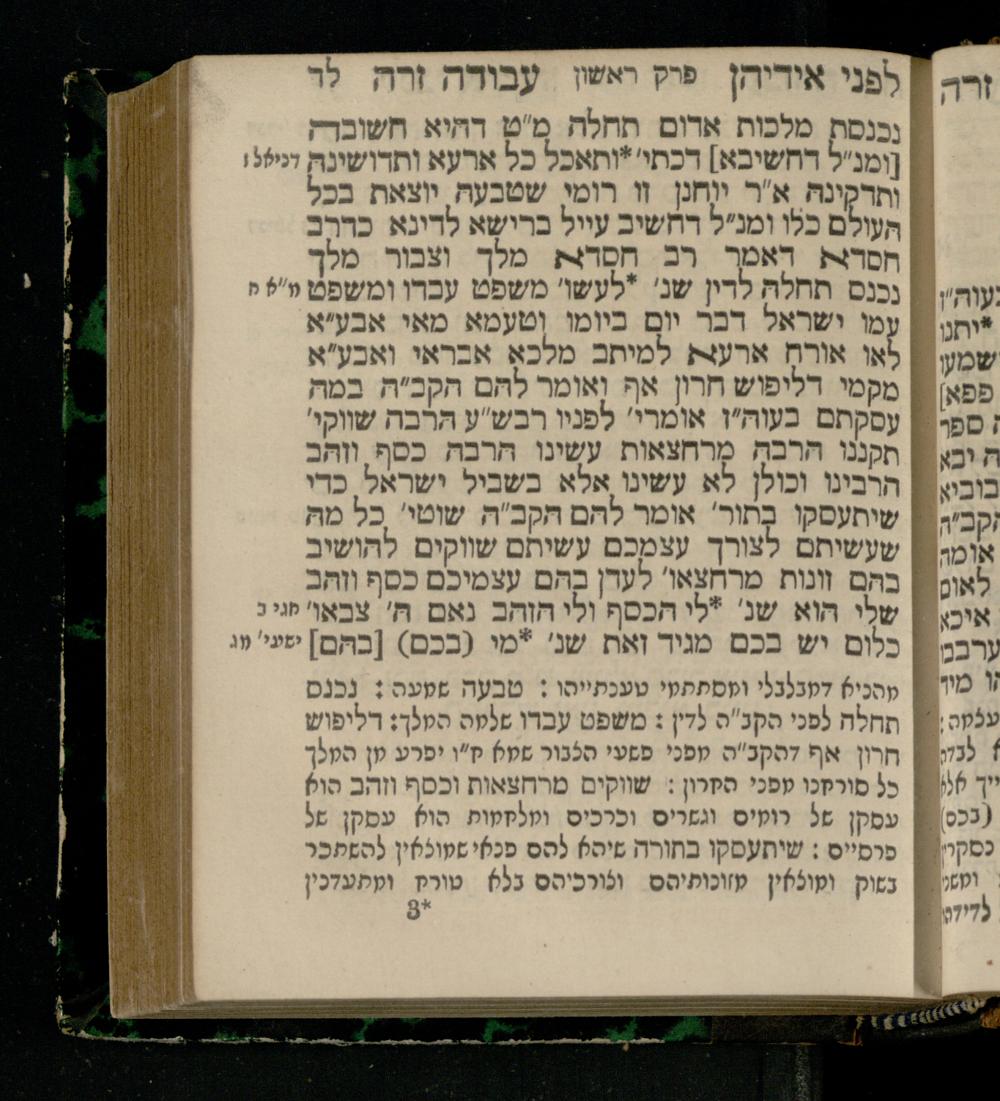 לפני אידיהן פרק ראשון עבודה זרה לד
נכנסת מלכות אדום תחלה מ״ט דהיא חשובה
[ומנ״ל דחשיבא] דכתי׳ *ותאכל כל ארעא ותדושינה דניאל ז
ותדקינה א״ר יוחנן זו רומי שטבעה יוצאת בכל
העולם כלו ומנ״ל דחשיב עייל ברישא לדינא כדרב
חסדא דאמר רב חסדא מלך וצבור מלך
נכנס תחלה לדין שנ׳ *לעשו׳ משפט עבדו ומשפט מ״א ח
עמו ישראל דבר יום ביומו וטעמא מאי אבע״א
לאו אורח ארעא למיתב מלכא אבראי ואבע״א
מקמי דליפוש חרון אף ואומר להם הקב״ה במה
עסקתם בעוה״ז אומרי׳ לפניו רבש״ע הרבה שווקי׳
תקננו הרבה מרחצאות עשינו הרבה כסף וזהב
הרבינו וכולן לא עשינו אלא בשביל ישראל כדי
שיתעסקו בתור׳ אומר להם הקב״ה שוטי׳ כל מה
שעשיתם לצורך עצמכם עשיתם שווקים להושיב
בהם זונות מרחצאו׳ לעדן בהם עצמיכם כסף וזהב
שלי הוא שנ׳ *לי הכסף ולי הזהב נאם ה׳ צבאו׳ חגי ב
כלום יש בכם מגיד זאת שנ׳ *מי (בכם) [בהם] ישעי׳ מג
מהכיא דמבלבלי ומסתתמי טענתייהו : טבעה שמעה : נכנס
תחלה לפני הקב״ה לדין : משפט עבדו שלמה המלך : דליפוש
חרון אף דהקב״ה מפני פשעי הצבור שמא ח״ו יפרע מן המלך
כל סורחנו מפני החרון : שווקים מרחצאות וכסף וזהב הוא
עסקן של רומים וגשרים וכרכים ומלחמות הוא עסקן של
פרסיים : שיתעסקו בתורה שיהא להם פנאי שמוצאין להשתכר
בשוק ומוצאין מזונותיהם וצורכיהם בלא טורח ומתעדנין
3*
זרה
בעוה״ז
*יתנו
ושמעו
פפא]
ספר
יבא
הקב״ה
אומה
לאום
איכא
מיד
(בכם)